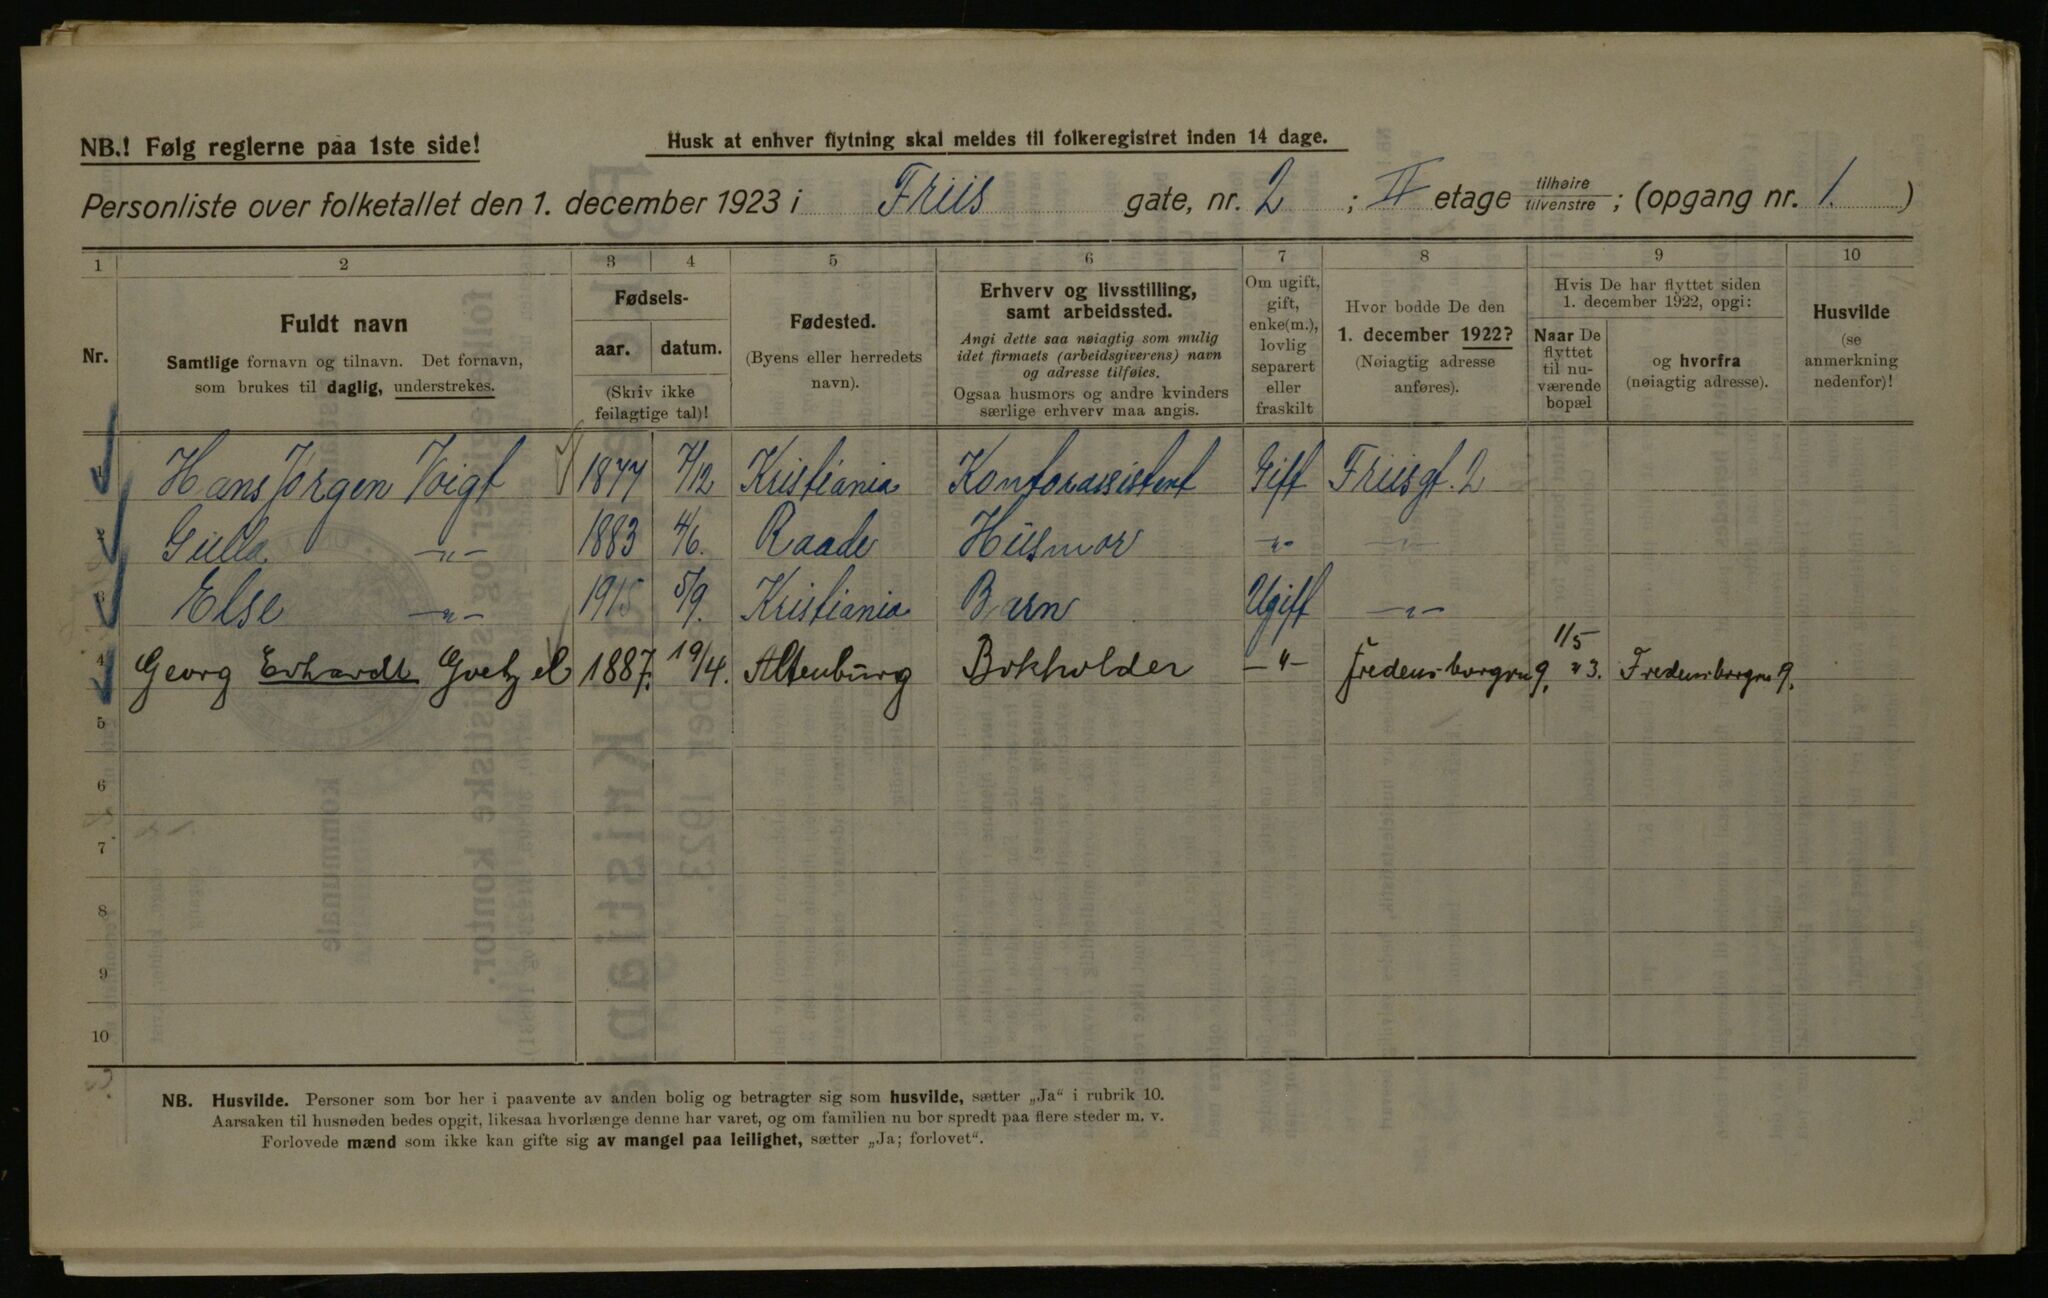 NB.! Følg reglerne paa 1ste side!
Husk at enhver flytning skal meldes til folkeregistret inden 14 dage.
Personliste over folketallet den 1. december 1923 i Friis gate, nr. 2 ; II etage tilhøire tilvenstre ; (opgang nr. 1. )
1 2 3 4 5 6 7 8 9 10
Nr.
Fuldt navn
Samtlige fornavn og tilnavn. Det fornavn,
som brukes til daglig, understrekes.
Fødsels-
aar. datum.
(Skriv ikke
feilagtige tal)!
Fødested.
(Byens eller herredets
navn).
Erhverv og livsstilling,
samt arbeidssted.
Angi dette saa nøiagtig som mulig
idet firmaets (arbeidsgiverens) navn
og adresse tilføies.
Ogsaa husmors og andre kvinders
særlige erhverv maa angis.
Om ugift,
gift,
enke(m.),
lovlig
separert
eller
fraskilt
Hvor bodde De den
1. december 1922?
(Nøiagtig adresse
anføres).
Hvis De har flyttet siden
1. december 1922, opgi:
Naar De
flyttet
til nu-
værende
bopæl
og hvorfra
(nøiagtig adresse).
Husvilde
(se
anmerkning
nedenfor)!
1 Hans Jørgen Voigt 1877 7/12 Kristiania Kontorassistent Gift Friisgt. 2
2 Gulla -"- 1883 4/6. Raade Husmor -"- -"-
3 Else -"- 1915 5/9. Kristiania Barn Ugift -"-
4 Georg Erhardt Goetzel 1887. 19/4. Altenburg Bokholder -"- Fredensborgvn 9. 1/5 23. Fredensborgvn 9.
5
6
7
8
9
10
NB. Husvilde. Personer som bor her i paavente av anden bolig og betragter sig som husvilde, sætter „Ja“ i rubrik 10.
Aarsaken til husnøden bedes opgit, likesaa hvorlænge denne har varet, og om familien nu bor spredt paa flere steder m. v.
Forlovede mænd som ikke kan gifte sig av mangel paa leilighet, sætter „Ja; forlovet“.